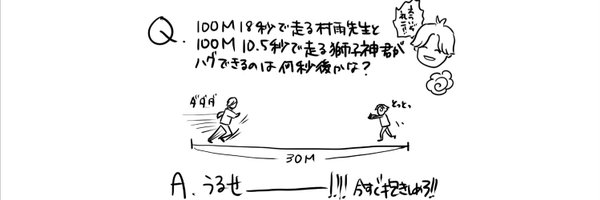 Q. 100M 18秒で走る村雨先生と
100M 10.5秒で走る獅子神君が
ハグできるのは何秒後かな?
ダダダ
とっとっ
30M
A. うるせ――――!!!! 今すぐ抱きしめろ!!